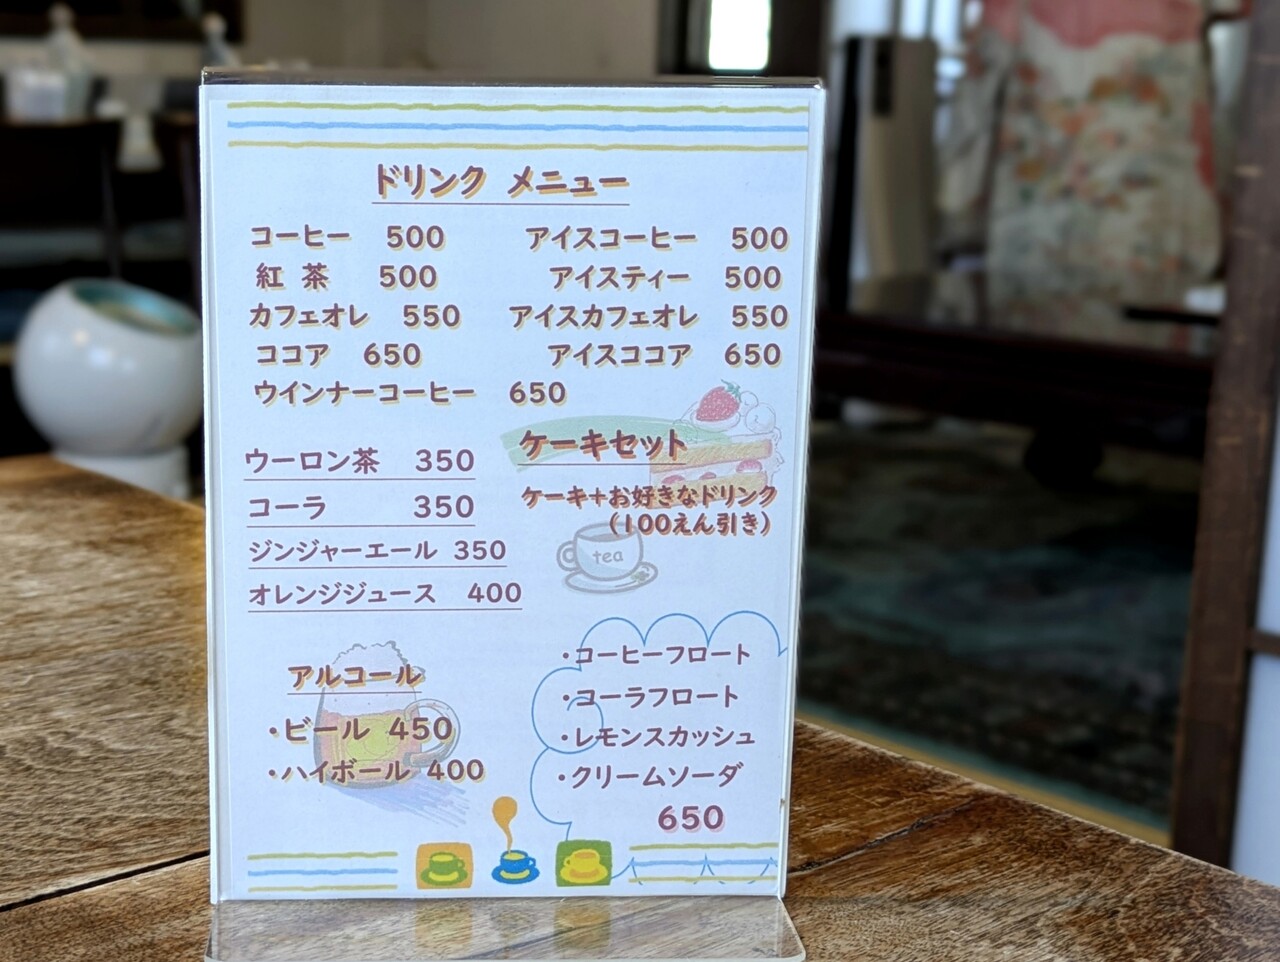 ドリンク メニュー
コーヒー 500 アイスコーヒー 500
紅 茶 500 アイスティー 500
カフェオレ 550 アイスカフェオレ 550
ココア 650 アイスココア 650
ウインナーコーヒー 650
ウーロン茶 350
コーラ 350
ジンジャーエール 350
オレンジジュース 400
ケーキセット
ケーキ+お好きなドリンク
(100えん引き)
tea
アルコール
・ビール 450
・ハイボール 400
・コーヒーフロート
・コーラフロート
・レモンスカッシュ
・クリームソーダ
650